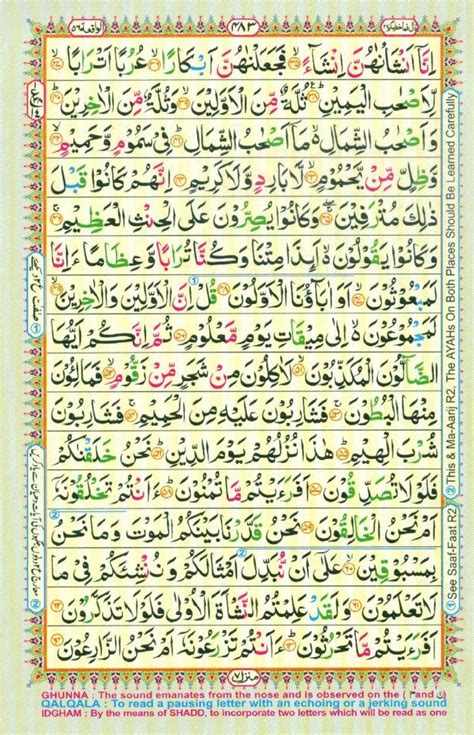 الواقعة ٥٦
٤٨٣
اِنَّاۤ اَنْشَاْنٰهُنَّ اِنْشَآءً ۙ فَجَعَلْنٰهُنَّ اَبْكَارًا ۙ عُرُبًا اَتْرَابًا ۙ
لِّاَصْحٰبِ الْيَمِيْنِ ؕ ثُلَّةٌ مِّنَ الْاَوَّلِيْنَ ۙ وَثُلَّةٌ مِّنَ الْاٰخِرِيْنَ ؕ
وَاَصْحٰبُ الشِّمَالِ ۙ مَاۤ اَصْحٰبُ الشِّمَالِ ؕ فِيْ سَمُوْمٍ وَّحَمِيْمٍ ۙ
وَّظِلٍّ مِّنْ يَّحْمُوْمٍ ۙ لَّا بَارِدٍ وَّلَا كَرِيْمٍ اِنَّهُمْ كَانُوْا قَبْلَ
ذٰلِكَ مُتْرَفِيْنَ ۚ وَكَانُوْا يُصِرُّوْنَ عَلَى الْحِنْثِ الْعَظِيْمِ ۚ
وَكَانُوْا يَقُوْلُوْنَ ۙ اَئِذَا مِتْنَا وَكُنَّا تُرَابًا وَّعِظَامًا ءَاِنَّا
لَمَبْعُوْثُوْنَ ۙ اَوَاٰبَآؤُنَا الْاَوَّلُوْنَ قُلْ اِنَّ الْاَوَّلِيْنَ وَالْاٰخِرِيْنَ ۙ
لَمَجْمُوْعُوْنَ ۙ اِلٰى مِيْقَاتِ يَوْمٍ مَّعْلُوْمٍ ثُمَّ اِنَّكُمْ اَيُّهَا
الضَّآلُّوْنَ الْمُكَذِّبُوْنَ ۙ لَاٰكِلُوْنَ مِنْ شَجَرٍ مِّنْ زَقُّوْمٍ ۙ فَمَالِـُٔوْنَ
مِنْهَا الْبُطُوْنَ ۚ فَشٰرِبُوْنَ عَلَيْهِ مِنَ الْحَمِيْمِ ۚ فَشٰرِبُوْنَ
شُرْبَ الْهِيْمِ ؕ هٰذَا نُزُلُهُمْ يَوْمَ الدِّيْنِ ؕ نَحْنُ خَلَقْنٰكُمْ
فَلَوْلَا تُصَدِّقُوْنَ اَفَرَءَيْتُمْ مَّا تُمْنُوْنَ ؕ ءَاَنْتُمْ تَخْلُقُوْنَهٗۤ
اَمْ نَحْنُ الْخٰلِقُوْنَ نَحْنُ قَدَّرْنَا بَيْنَكُمُ الْمَوْتَ وَمَا نَحْنُ
بِمَسْبُوْقِيْنَ ۙ عَلٰۤى اَنْ نُّبَدِّلَ اَمْثَالَكُمْ وَنُنْشِئَكُمْ فِيْ مَا
لَا تَعْلَمُوْنَ وَلَقَدْ عَلِمْتُمُ النَّشْاَةَ الْاُوْلٰى فَلَوْلَا تَذَكَّرُوْنَ
اَفَرَءَيْتُمْ مَّا تَحْرُثُوْنَ ؕ ءَاَنْتُمْ تَزْرَعُوْنَهٗۤ اَمْ نَحْنُ الزّٰرِعُوْنَ
① See Saaf-Faat R2 ② This & Ma-Aarij R2, The AYAHs On Both Places Should Be Learned Carefully
منزل ٧
GHUNNA : The sound emanates from the nose and is observed on the ( م and ن )
QALQALA : To read a pausing letter with an echoing or a jerking sound
IDGHAM : By the means of SHADD, to incorporate two letters which will be read as one